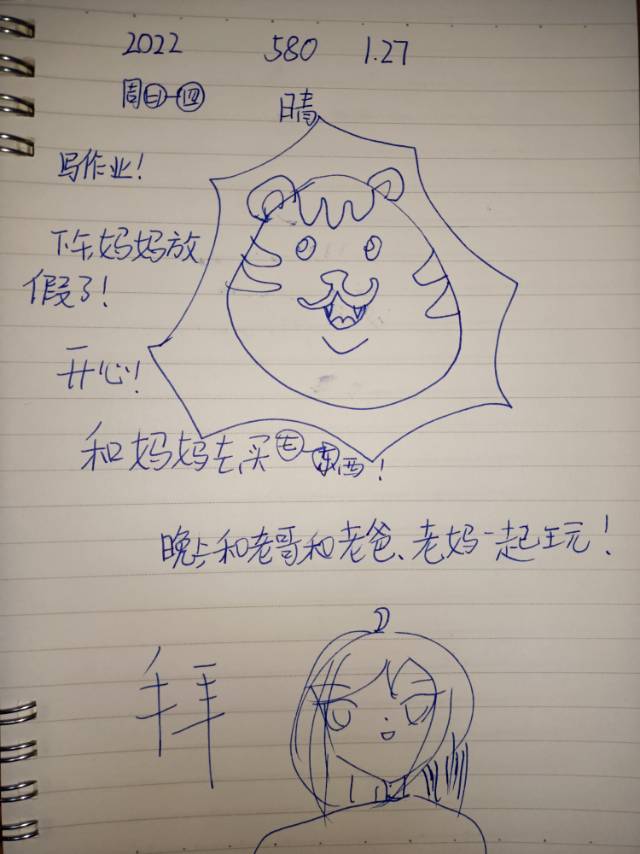 2022 580 1.27
周日四
晴
写作业！
下午妈妈放
假了！
开心！
和妈妈去买东西！
晚上和老哥和老爸、老妈一起玩！
拜